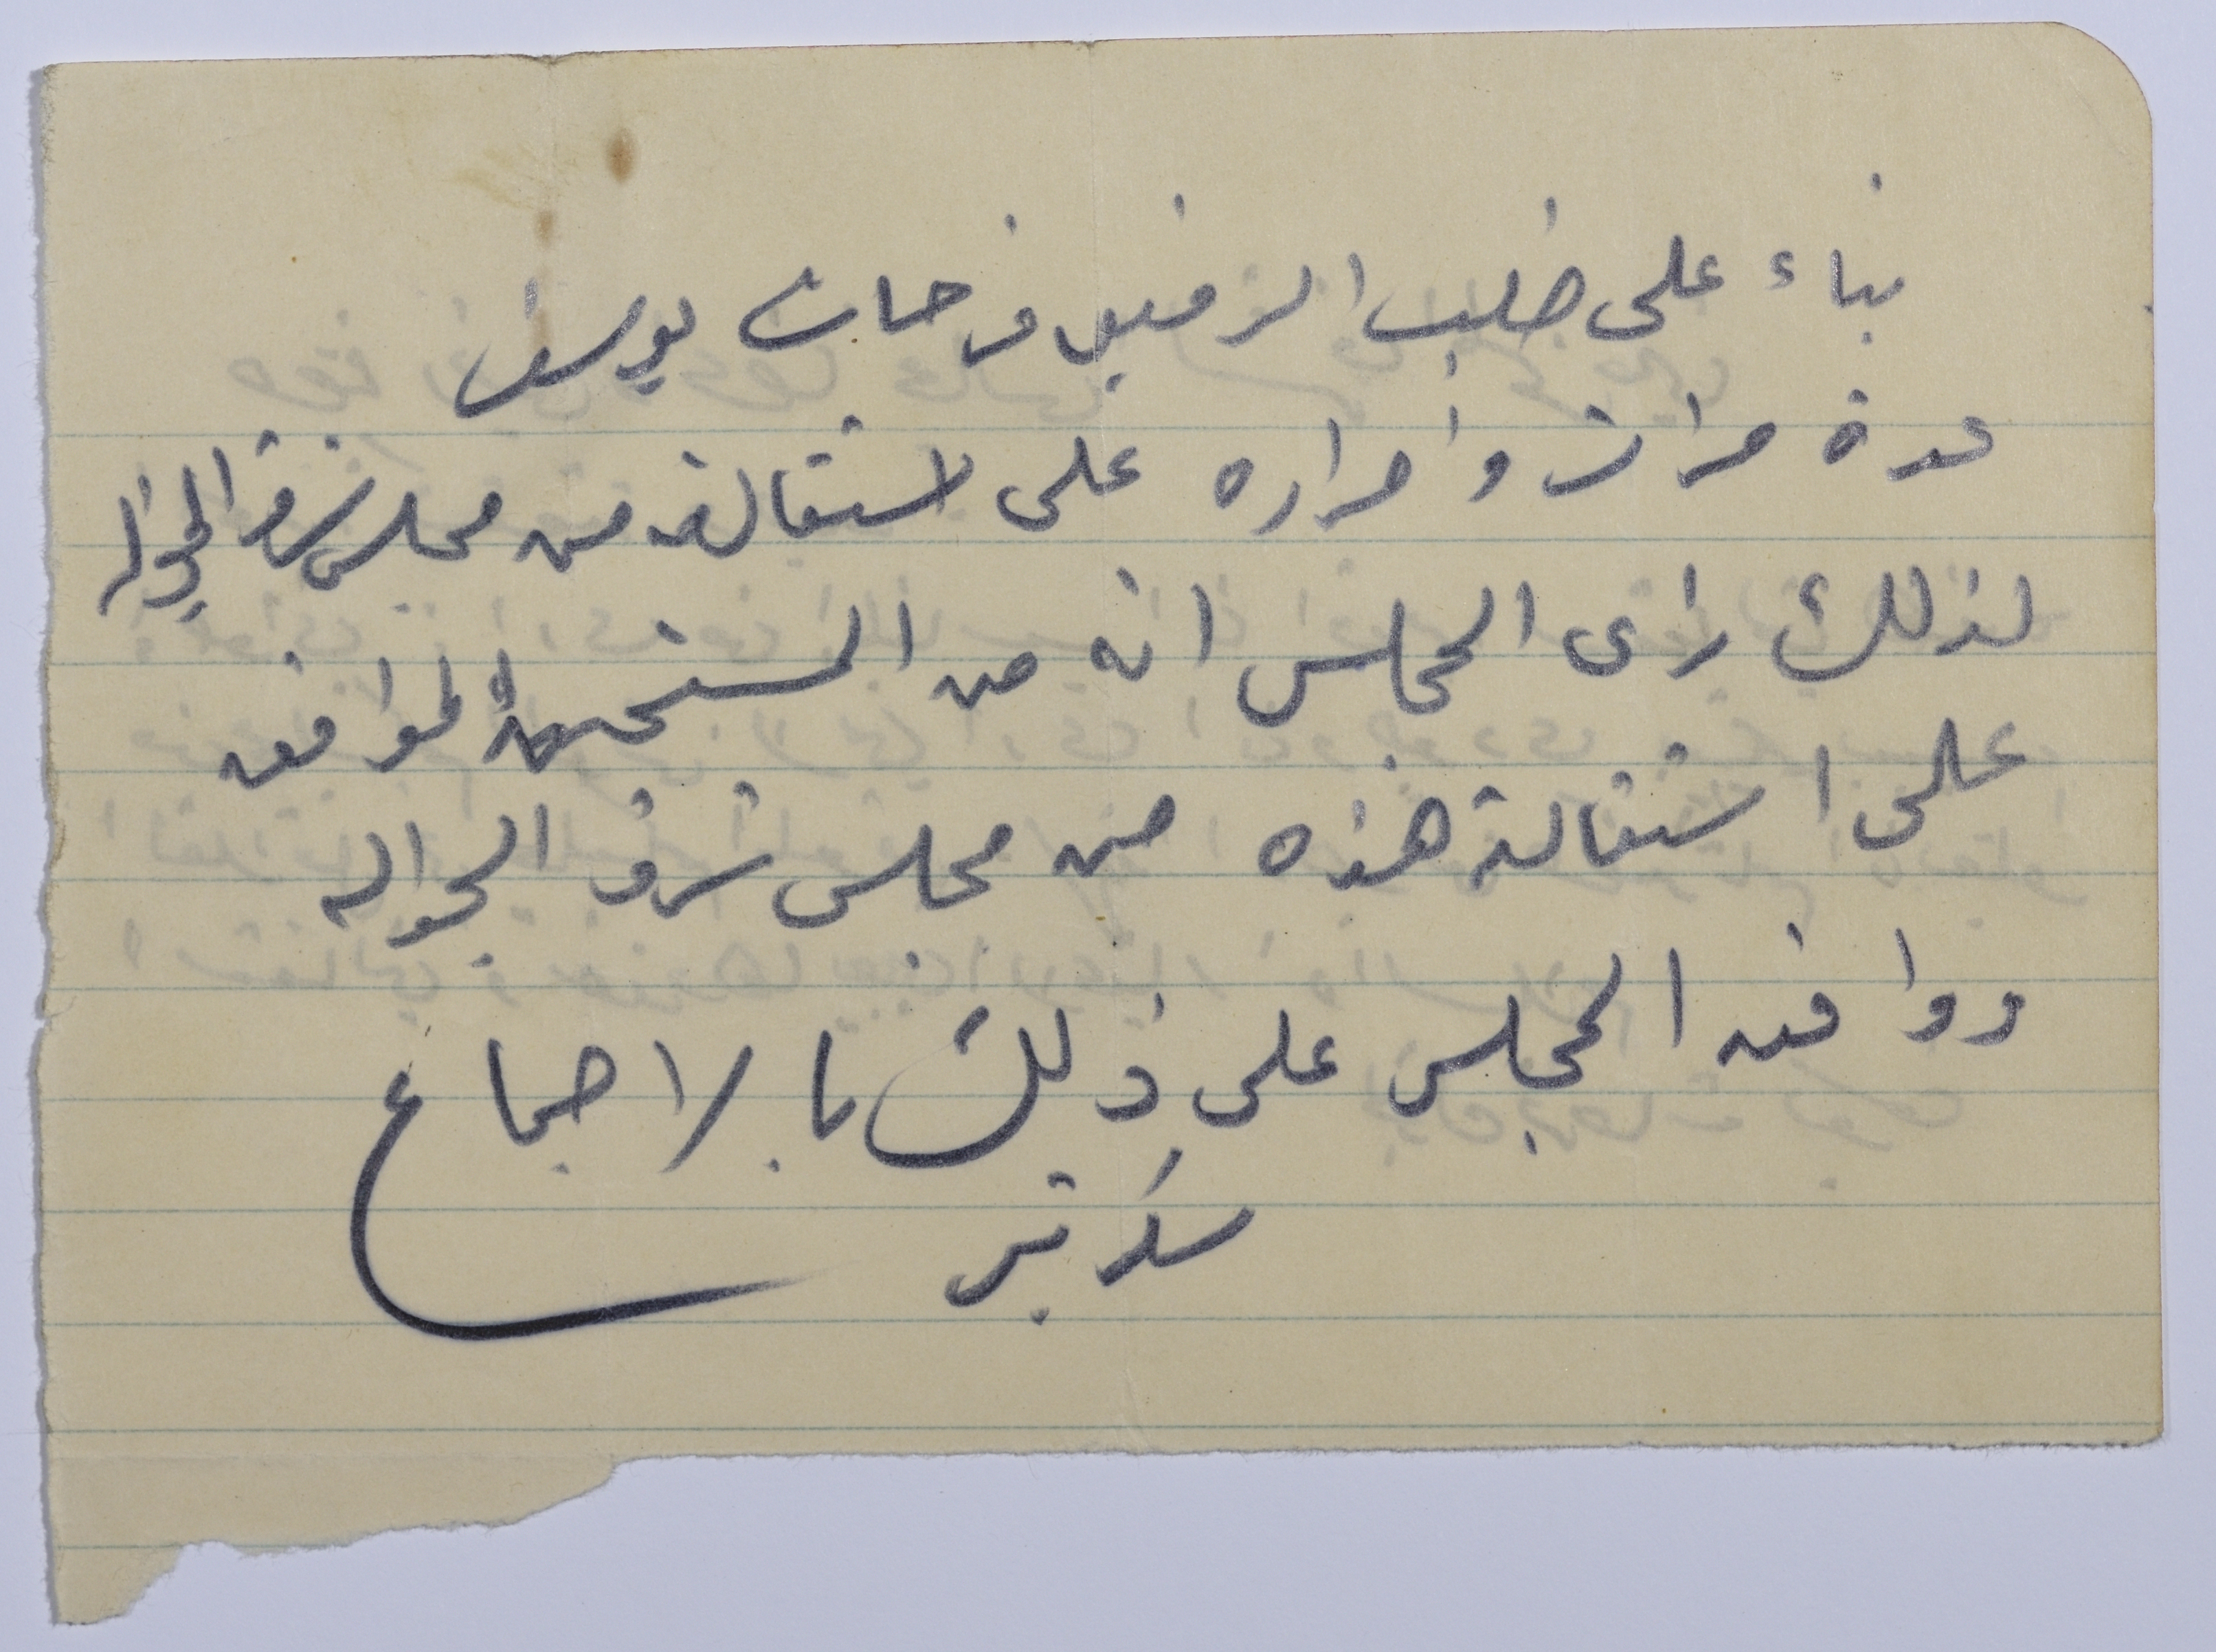 بناء على طلب الرفيق فرحات يوسف
عدة مرات واصراره على استقالته من مجلس شرف الجواله
لذلك رأى المجلس انه من المستحسن الموافقه
على استقالة هذه من مجلس شرف الجواله
ووافق المجلس على ذلك بالاجماع
سكرتير